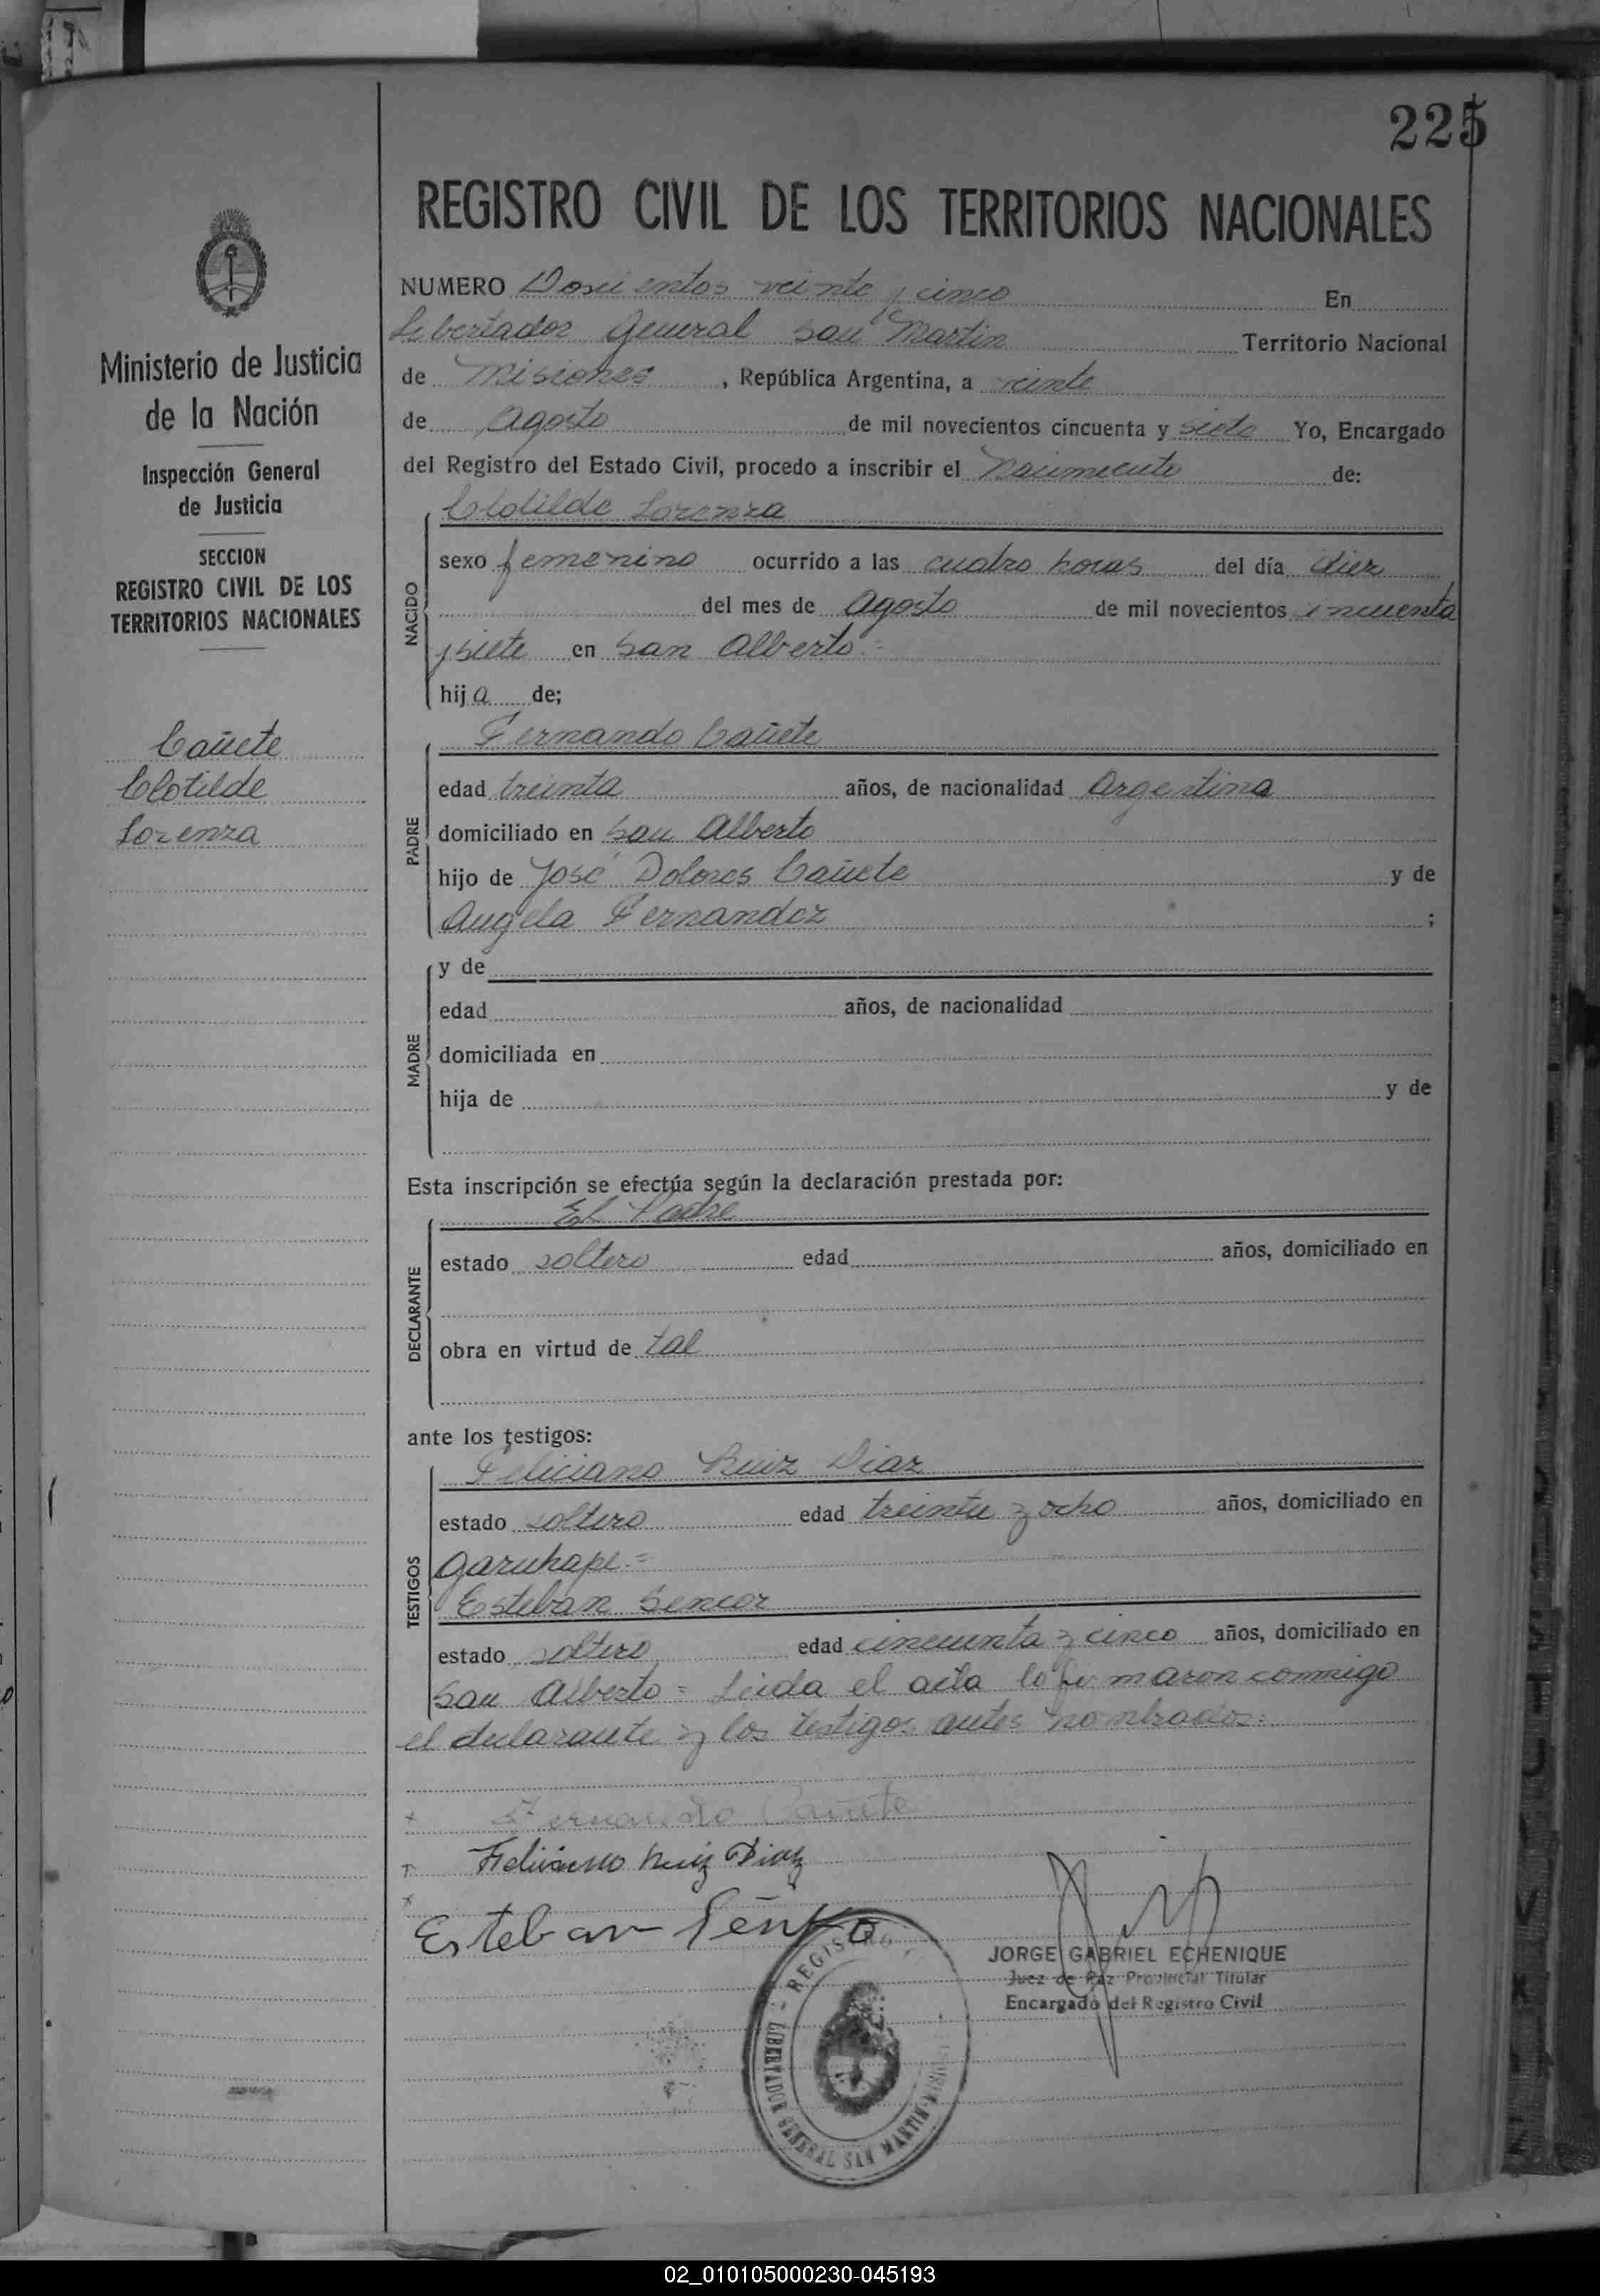 225
REGISTRO CIVIL DE LOS TERRITORIOS NACIONALES
Ministerio de Justicia
de la Nación
Inspección General
de Justicia
SECCION
REGISTRO CIVIL DE LOS
TERRITORIOS NACIONALES
Cañete
Clotilde
Lorenza
NUMERO Doscientos veinte y cinco En
Libertador General San Martin Territorio Nacional
de Misiones, República Argentina, a veinte
de Agosto de mil novecientos cincuenta y siete Yo, Encargado
del Registro del Estado Civil, procedo a inscribir el Nacimiento de:
NACIDO
Clotilde Lorenza
sexo femenino ocurrido a las cuatro horas del día diez
del mes de Agosto de mil novecientos cincuenta
y siete en San Alberto.=
hija de;
PADRE
Fernando Cañete
edad treinta años, de nacionalidad Argentina
domiciliado en San Alberto
hijo de José Dolores Cañete y de
Angela Fernandez ;
MADRE
y de
edad años, de nacionalidad
domiciliada en
hija de y de
Esta inscripción se efectúa según la declaración prestada por:
DECLARANTE
El Padre
estado soltero edad años, domiciliado en
obra en virtud de tal
ante los testigos:
TESTIGOS
Feliciano Ruiz Diaz
estado soltero edad treinta y ocho años, domiciliado en
Garuhape.=
Esteban
estado soltero edad cincuenta y cinco años, domiciliado en
San Alberto = Leida el acta la firmaron conmigo
el declarante y los testigos antes nombrados.=
Fernando Cañete
Feliciano Ruiz Diaz
Esteban
JORGE GABRIEL ECHENIQUE
Juez de Paz Provincial Titular
Encargado del Registro Civil
REGISTRO
LIBERTADOR GENERAL SAN MARTIN
02_010105000230-045193